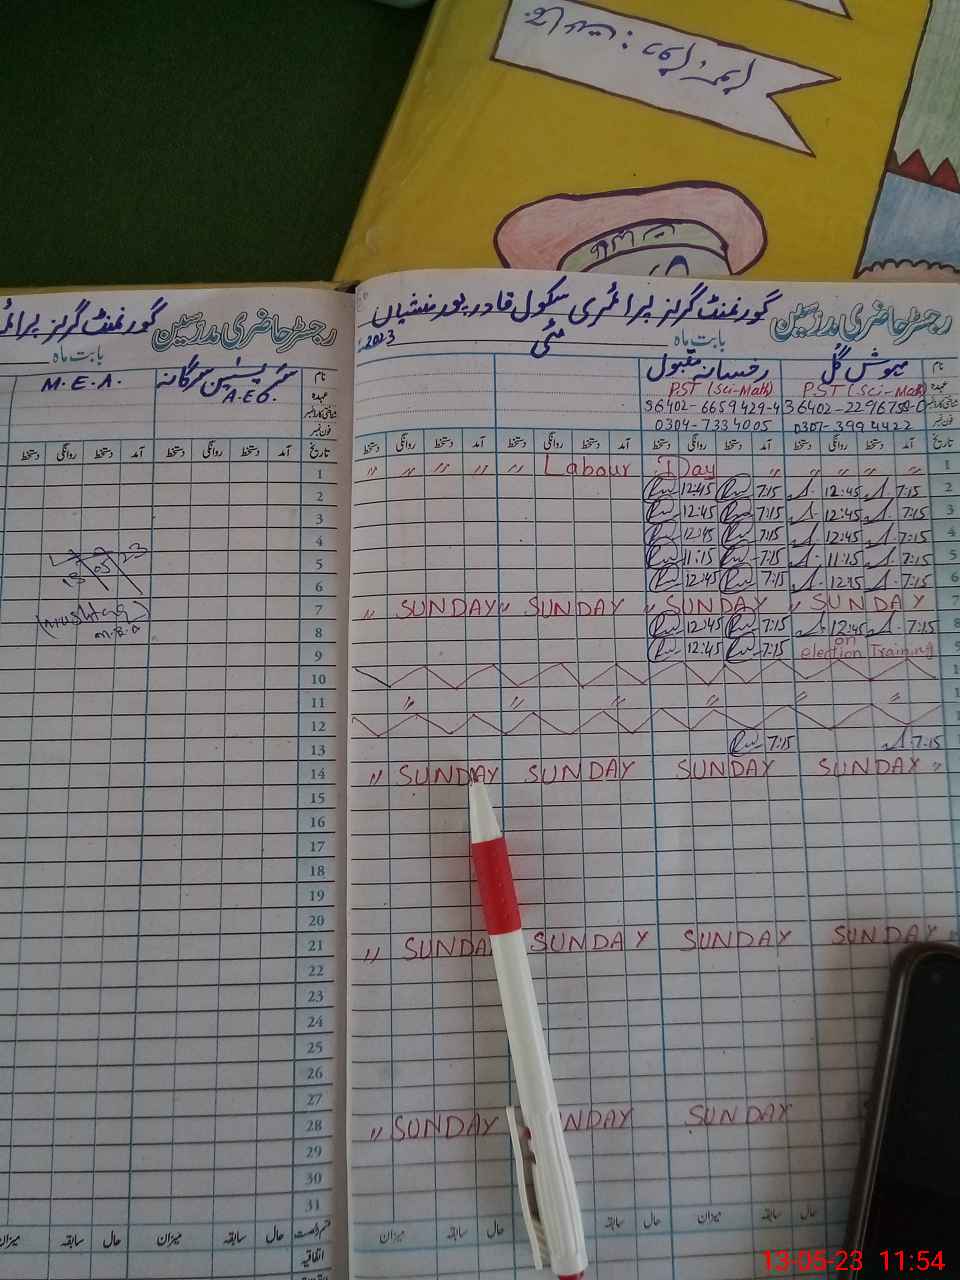 گورنمنٹ گرلز پرائمری سکول قادر پور منشیاں
رجسٹر حاضری مدرسین
بابت ماہ مئی 2023ء
نام مہوش گل رخسانہ مقبول
عہدہ PST (Sci-Math) PST (Sci-Math)
0304-7334005 0307-3994422
تاریخ آمد دستخط روانگی دستخط آمد دستخط روانگی دستخط آمد دستخط روانگی دستخط آمد دستخط روانگی دستخط
1 " " " " " Labour Day " " " "
2 12:45 7:15 12:45 7:15
3 12:45 7:15 12:45 7:15
4 12:45 7:15 12:45 7:15
5 11:15 7:15 11:15 7:15
6 12:45 7:15 7:15
7 " SUNDAY " SUNDAY " SUNDAY " SUNDAY
8 12:45 7:15 12:45 7:15
9 12:45 7:15 on election Training
" " " " "
7:15 7:15
" SUNDAY SUNDAY SUNDAY SUNDAY "
" SUNDAY SUNDAY SUNDAY SUNDAY "
" SUNDAY NDAY SUNDAY
میزان سابقہ حال میزان
گورنمنٹ گرلز
رجسٹر حاضری مدرسین
بابت ماہ
نام M.E.A.
عہدہ A.E.O.
شناختی کارڈ نمبر
فون نمبر
تاریخ آمد دستخط روانگی دستخط آمد دستخط روانگی دستخط
1
2
3
4
5
6
7
8
9
10
11
12
13
14
15
16
17
18
19
20
21
22
23
24
25
26
27
28
29
30
31
13 05 23
(Mushtaq)
M.E.A
حال سابقہ میزان حال سابقہ میزان
اتفاقیہ
13-05-23 11:54